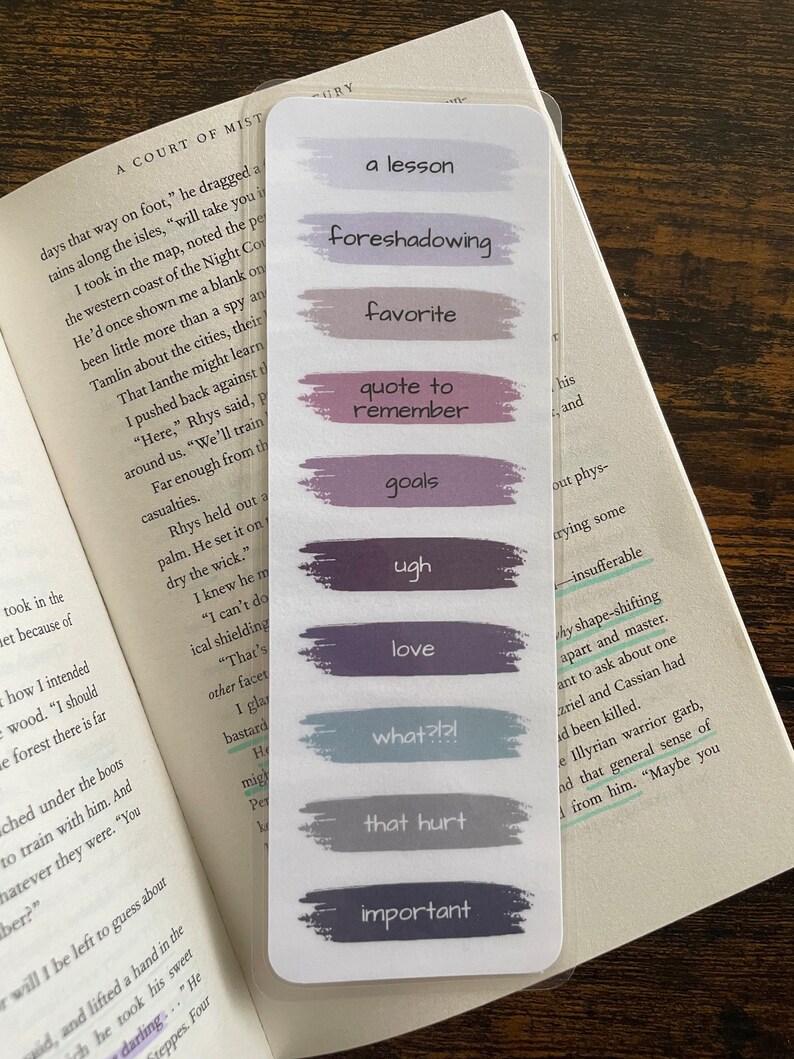 A COURT OF MIST URY
a lesson
foreshadowing
favorite
quote to
remember
goals
ugh
love
what?!?!
that hurt
important
days that way on foot," he dragged a
tains along the isles, "will take you
I took in the map, noted the
the western coast of the Night
He'd once shown me a blank on
been little more than a spy
Tamlin about the cities, their
That Ianthe might learn
I pushed back against
"Here," Rhys said,
around us. "We'll train
Far enough from
casualties.
Rhys held out a
palm. He set it on
dry the wick."
I knew he
"I can't do
ical shielding
"That's
other
bastard
his
and
out phys-
trying some
—insufferable
why shape-shifting
apart and master.
ant to ask about one
zriel and Cassian had
d been killed.
e Illyrian warrior garb,
d that general sense of
from him. "Maybe you
took in the
let because of
t how I intended
wood. "I should
e forest there is far
ched under the boots
to train with him. And
hatever they were. "You
ber?"
r will I be left to guess about
said, and lifted a hand in the
he took his sweet
darling . . ." He
Steppes. Four